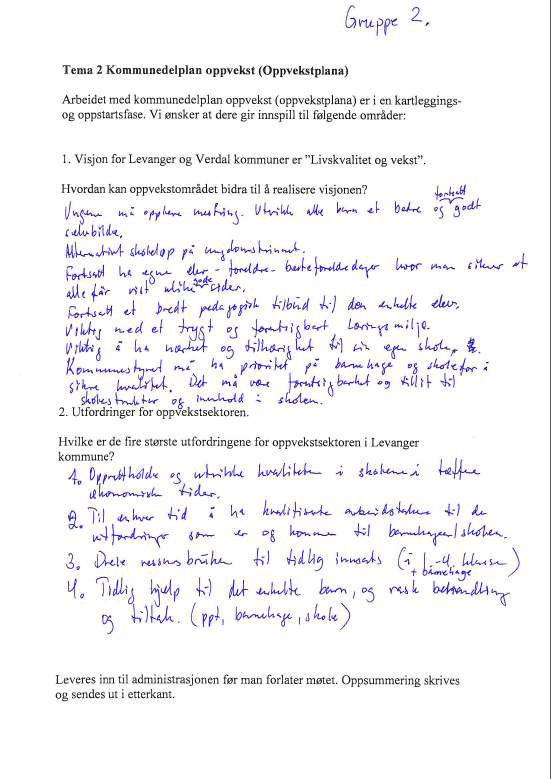 Gruppe 2.
Tema 2 Kommunedelplan oppvekst (Oppvekstplana)
Arbeidet med kommunedelplan oppvekst (oppvekstplana) er i en kartleggings-
og oppstartsfase. Vi ønsker at dere gir innspill til følgende områder:
1. Visjon for Levanger og Verdal kommuner er "Livskvalitet og vekst".
Hvordan kan oppvekstområdet bidra til å realisere visjonen?
fortsatt
Ungene må oppleve mestring. Utvikle alle barn et bedre og godt
selvbilde.
Alternativt skoleløp på ungdomstrinnet.
Fortsatt ha egne elev- foreldre- besteforeldredager hvor man sikrer at
gode
alle får vist ulike sider.
Fortsatt et bredt pedagogisk tilbud til den enkelte elev.
Viktig med et trygt og forutsigbart læringsmiljø.
Viktig å ha nærhet og tilhørighet til sin egen skole.
Kommunestyret må ha prioritet på barnehage og skole for å
sikre kvalitet. Det må være forutsigbarhet og tillit til
skolestruktur og innhold i skolen.
2. Utfordringer for oppvekstsektoren.
Hvilke er de fire største utfordringene for oppvekstsektoren i Levanger
kommune?
1. Opprettholde og utvikle kvaliteten i skolene i tøffe
økonomiske tider.
2. Til enhver tid å ha kvalifiserte arbeidstakere til de
utfordringer som er og kommer til barnehagen/skolen.
3. Dreie ressursbruken til tidlig innsats (i 1-4 klasse)
+ barnehage
4. Tidlig hjelp til det enkelte barn, og rask behandling
og tiltak. (ppt, barnehage, skole)
Leveres inn til administrasjonen før man forlater møtet. Oppsummering skrives
og sendes ut i etterkant.